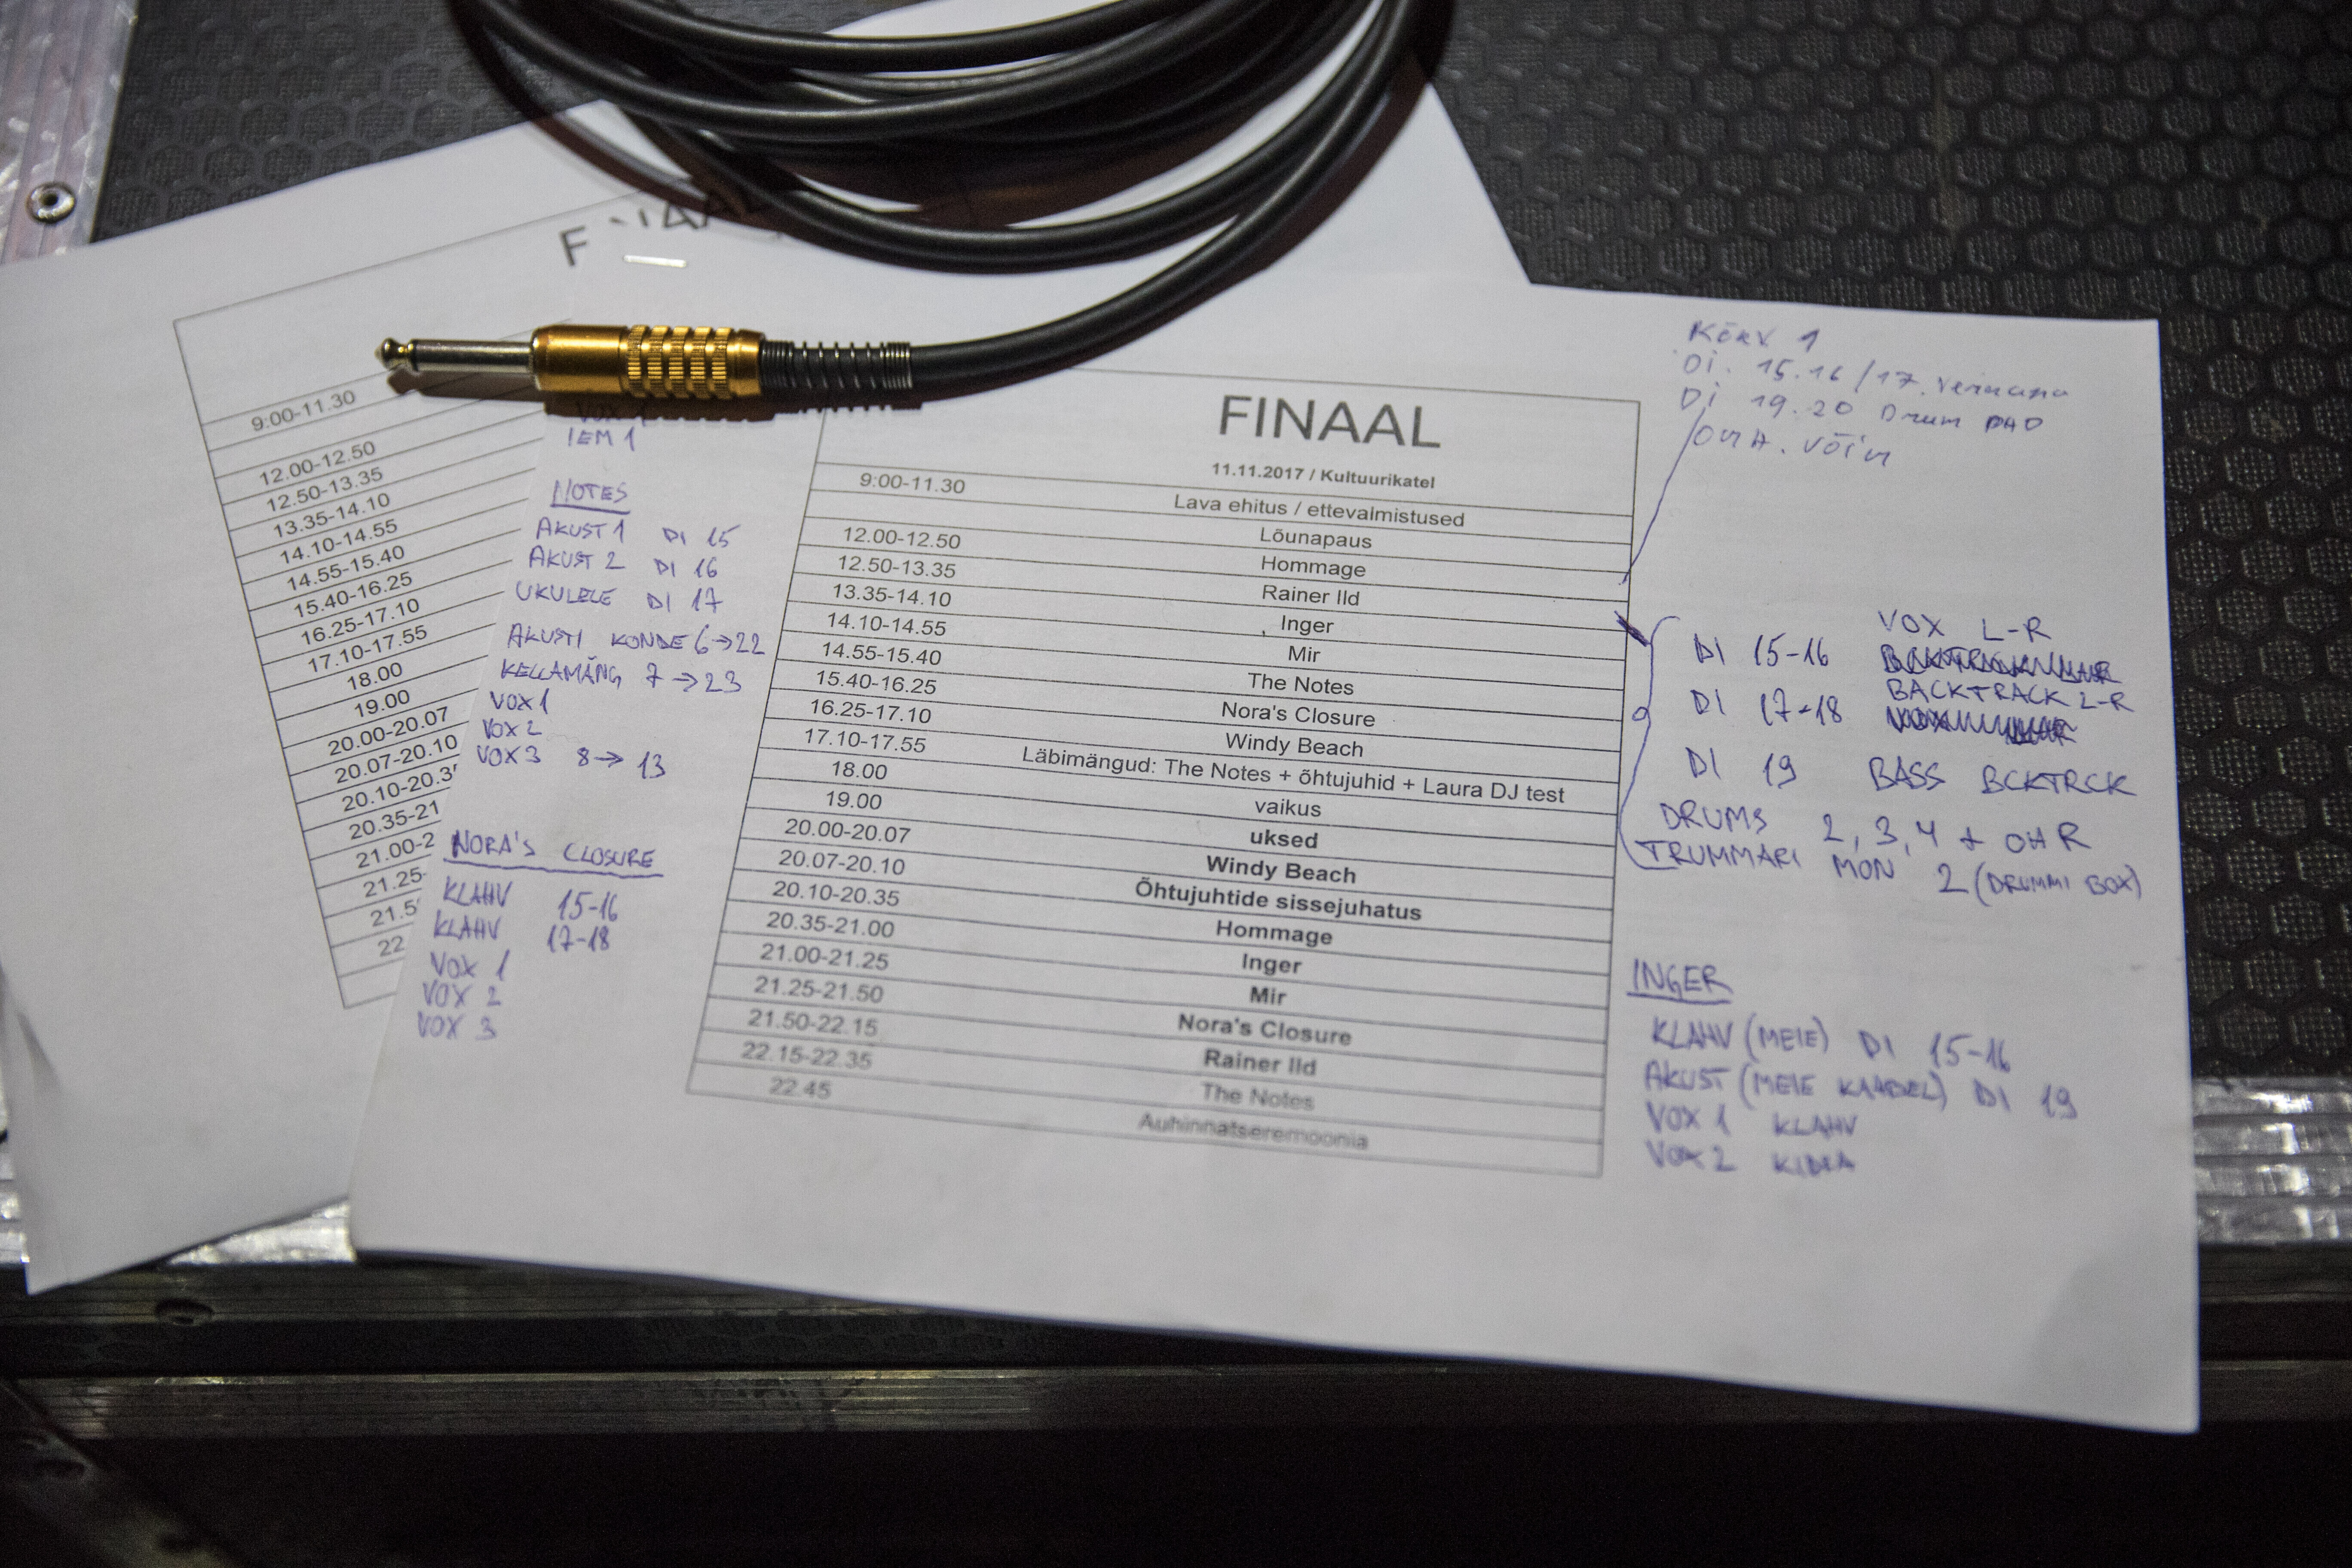 FINAAL
9:00-11.30
12.00-12.50
12.50-13.35
13.35-14.10
14.10-14.55
14.55-15.40
15.40-16.25
16.25-17.10
17.10-17.55
18.00
19.00
20.00-20.07
20.07-20.10
20.10-20.3
20.35-21
21.00-2
21.25-
21.5
22
IEM 1
NOTES
AKUST 1 DI 15
AKUST 2 DI 16
UKULELE DI 17
AKUST1 KONDE 6→22
KELLAMÄNG 7→23
VOX 1
VOX 2
VOX 3 8→13
NORA'S CLOSURE
KLAHV 15-16
KLAHV 17-18
VOX 1
VOX 2
VOX 3
FINAAL
11.11.2017 / Kultuurikatel
9:00-11.30 Lava ehitus / ettevalmistused
Lõunapaus
12.00-12.50 Hommage
12.50-13.35 Rainer Ild
13.35-14.10 Inger
14.10-14.55 Mir
14.55-15.40 The Notes
15.40-16.25 Nora's Closure
16.25-17.10 Windy Beach
17.10-17.55 Läbimängud: The Notes + õhtujuhid + Laura DJ test
18.00 vaikus
19.00 uksed
20.00-20.07 Windy Beach
20.07-20.10 Õhtujuhtide sissejuhatus
20.10-20.35 Hommage
20.35-21.00 Inger
21.00-21.25 Mir
21.25-21.50 Nora's Closure
21.50-22.15 Rainer Ild
22.15-22.35 The Notes
22.45 Auhinnatseremoonia
KÕRV 1
DI. 15.16 / 17.
DI 19.20 Drum PAD
VÕIM
VOX L-R
DI 15-16
BACKTRACK L-R
DI 17-18
DI 19 BASS BCKTRCK
DRUMS 2, 3, 4 + OH R
TRUMMARI MON 2 (DRUMMI BOX)
INGER
KLAHV (MEIE) DI 15-16
AKUST (MEIE KAABEL) DI 19
VOX 1 KLAHV
VOX 2 KIDRA